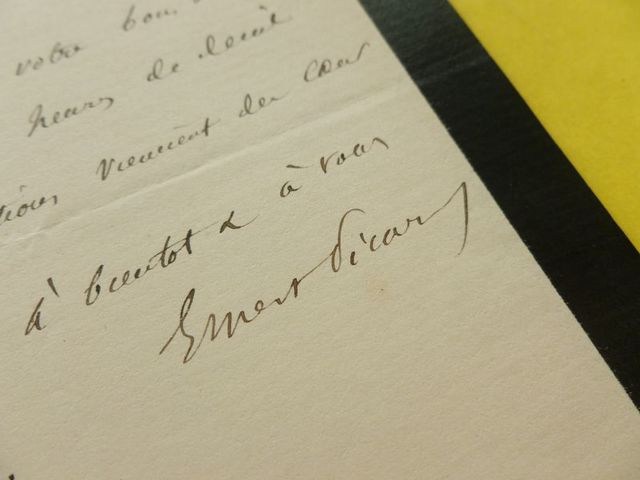 votre bon
heures de deuil
viennent du cœur
à bientot & à vous
Ernest Picard